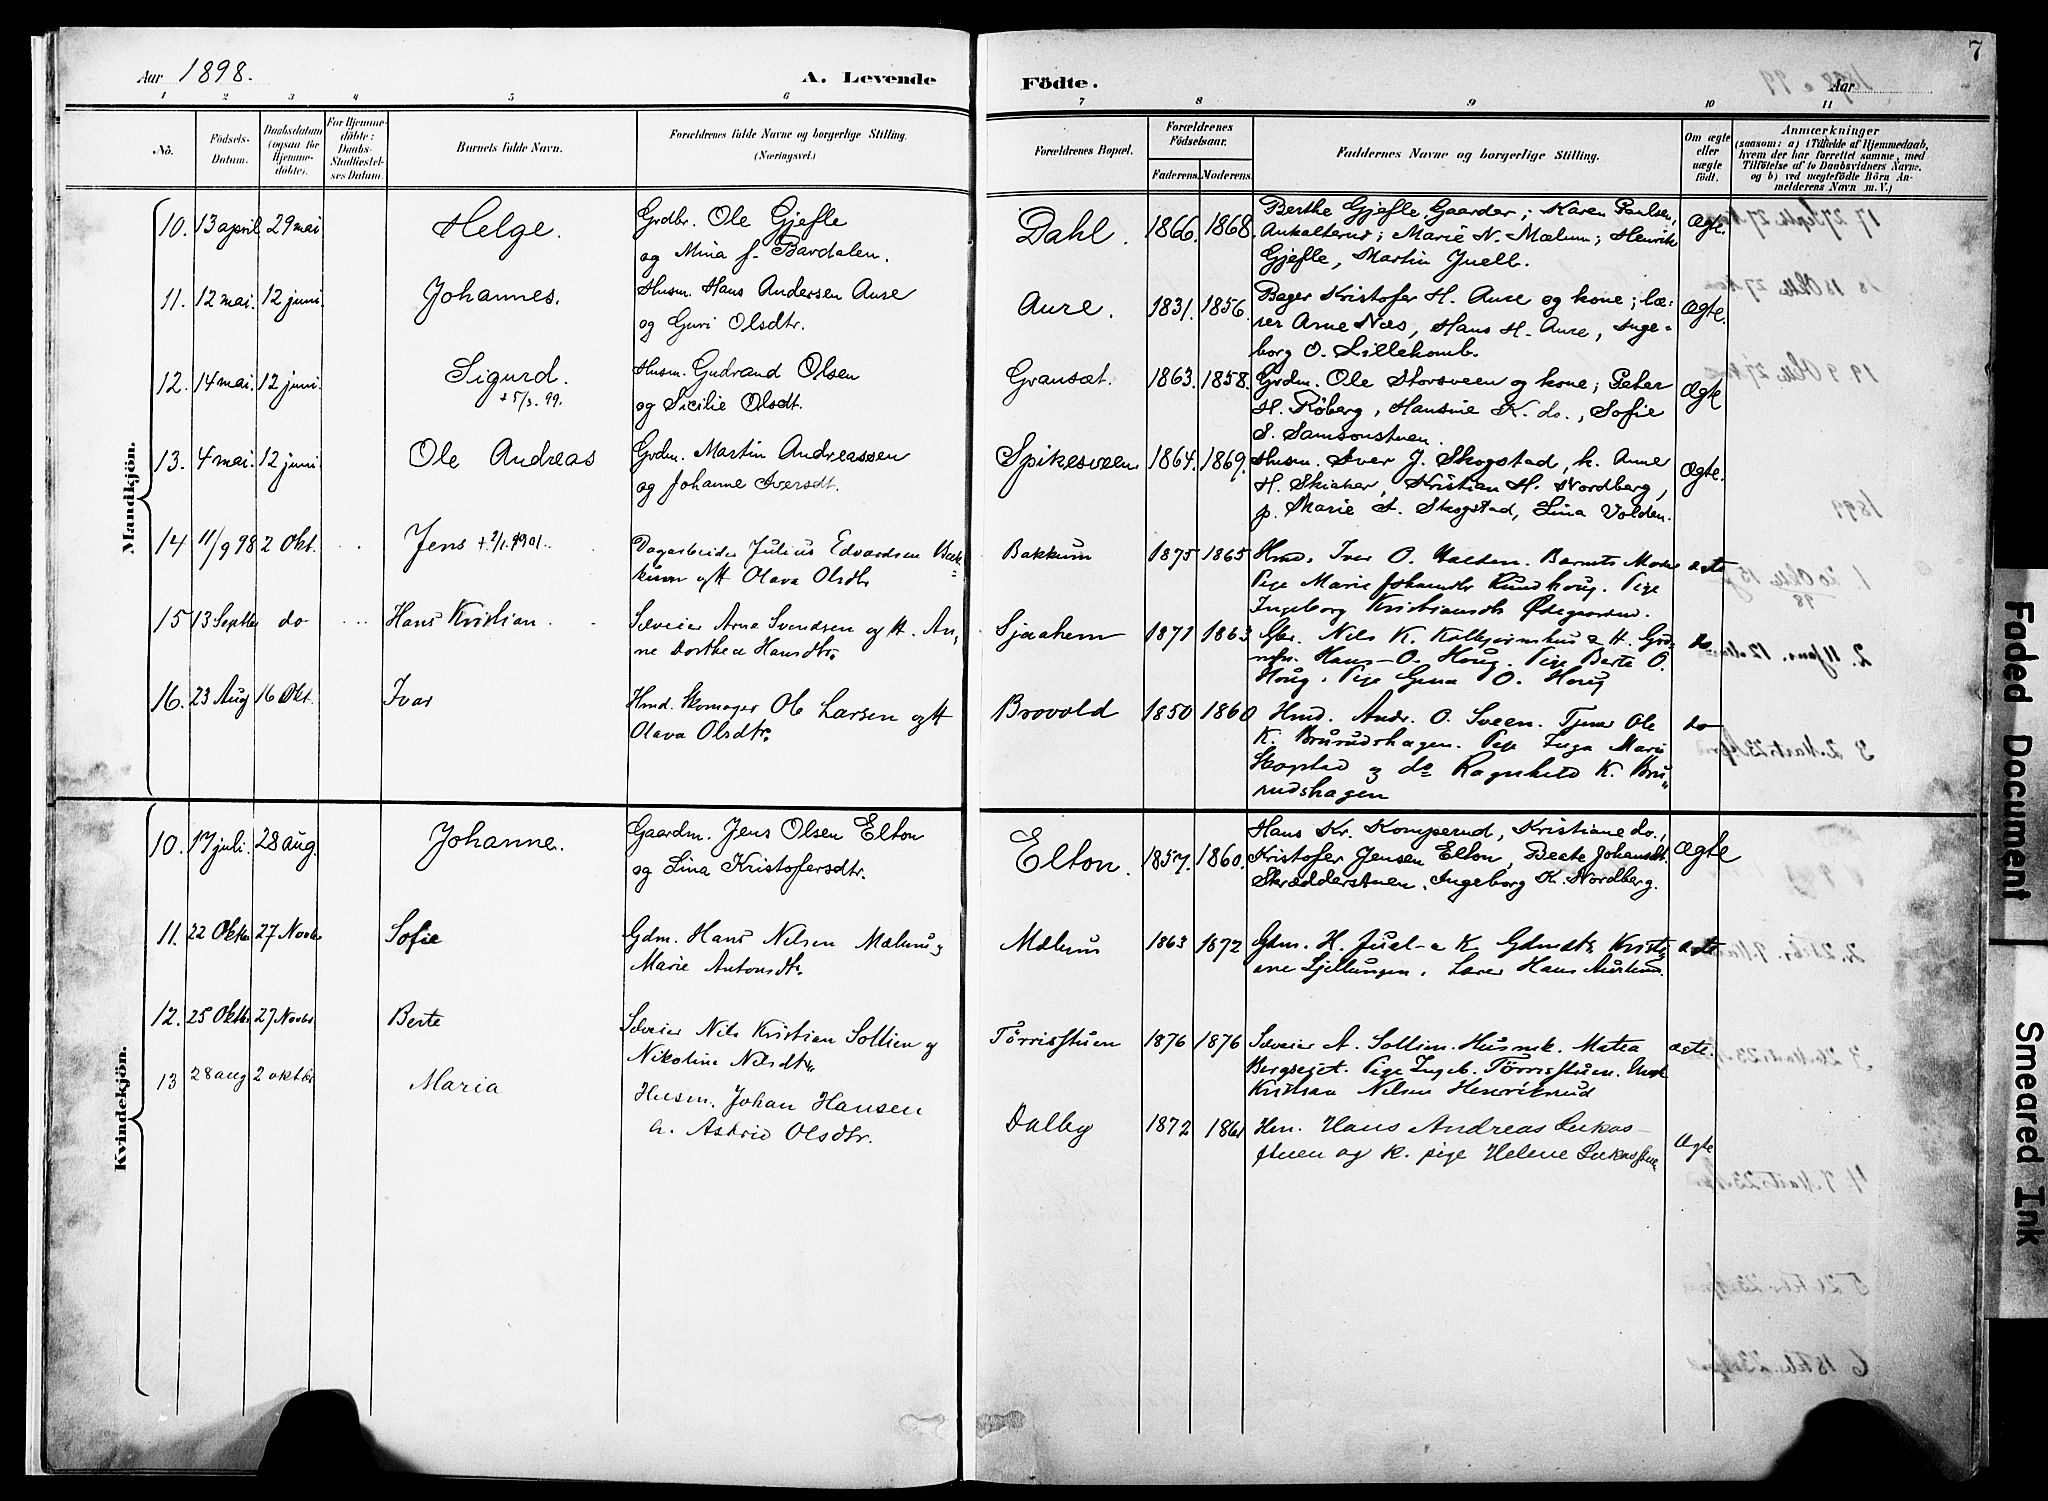 7
Aar 1898.
A. Levende
Födte.
Aar
1 2 3 4 5 6 7 8 9 10 11
Nö.
Födsels-Datum.
Daabsdatum (ogsaa for Hjemmedöbte).
For Hjemmedöbte: Daabs-Stadfæstelses Datum.
Barnets fulde Navn.
Forældrenes fulde Navne og borgerlige Stilling.
(Næringsvei.)
Forældrenes Bopæl.
Forældrenes Födselsaar.
Faderens. Moderens.
Faddernes Navne og borgerlige Stilling.
Om ægte eller uægte födt.
Anmærkninger
(saasom: a) i Tilfælde af Hjemmedaab, hvem der har forrettet samme, med Tilföielse af to Daabsvidners Navne. og b) ved uegtefödte Börn Anmelderens Navn m. V.)
Mandkjön.
10. 13 april 29 mai Helge. Grdbr. Ole Gjefle
og Mina f. Bardalen.
Dahl. 1866. 1868. Berthe Gjefle, Gaarder; Karen Paulsen,
Ankalterud; Marie N. Mælum; Henrik
Gjefle, Martin Juell.
Ægte.
11. 12 mai. 12 juni. Johannes. Husm. Hans Andersen Aure
og Guri Olsdtr.
Aure. 1831. 1856. Bager Kristofer H. Aure og kone; læ-
rer Arne Næs, Hans H. Aure, Inge-
borg O. Lillekomb.
Ægte.
12. 14 mai. 12 juni. Sigurd.
+ 5/3. 99.
Husm. Gudrand Olsen
og Sicilie Olsdt.
Gransæt. 1863. 1858. Grdm. Ole Storsveen og kone; Peter
H. Røberg, Hansine K. do., Sofie
S. Samsonstuen.
Ægte
13. 4 mai. 12 juni. Ole Andreas Grdm. Martin Andreassen
og Johanne Iversdt.
Spikesveen 1864. 1869. Husm. Iver J. Skogstad, k. Anne
H. Skiaker, Kristian H. Nordberg,
p. Marie A. Skogstad, Lina Volden.
Ægte.
14 11/9 98 2 Okt. Jens Dagarbeider Julius Edvardsen Bak-
kum og H Olava Olsdtr
Bakkum 1875 1865 Hmd. Iver O. Halden. Barnets Moder
Pige Marie Johansdtr Rundhoug. Pige
Ingeborg Kristiansdtr Ødegaarden.
ægte
15 13 Septbr do Hans Kristian Selveier Arne Svendsen og H. An-
ne Dorthea Hansdtr.
Sjaahem 1871 1863 Hans O. Houg. Pige Berte O.
Houg. Pige Gina O. Houg
do
16. 23 Aug 16 Okt. Ivar Hmd. Skomager Ole Larsen og H
Olava Olsdtr.
Brovold 1850 1860 Hmd. Andr. O. Sveen. Tjener Ole
K. Brurudshagen. Pige Inga Marie
Skogstad og do Ragnhild K. Bru-
rudshagen
do
Kvindekjön.
10. 17 juli. 28 aug. Johanne. Gaardm. Jens Olsen Elton
og Lina Kristofersdtr.
Elton. 1857. 1860. Hans Kr. Komperud, Kristiane do.,
Kristofer Jensen Elton, Beate Johansdt.
Skrædderstuen, Ingeborg K. Nordberg.
Ægte
11. 22 Oktbr 27 Novbr Sofie Gdm. Hans Nilsen Mælum og
Marie Antonsdtr.
Mælum 1863 1872 Gdm. H. Juel
Lærer Hans
ægte
12. 25 Oktbr 27 Novbr Berte Selveier Nils Kristian Sollien og
Nikoline Nilsdtr.
Törrisstuen 1876 1876 Selveier A. Sollien. Husmk. Matea
Bergseget. Pige Ingeb. Törrisstuen. Ungk
Kristian Nilsen Henriksrud
ægte.
13 28 aug 2 oktbr Maria Husm. Johan Hansen
h. Astrid Olsdtr.
Dalby 1872 1861 Hm. Hans Andreas Lukas-
stuen og K. pige Helene Lukasstuen
Ægte
Faded Document
Smeared Ink